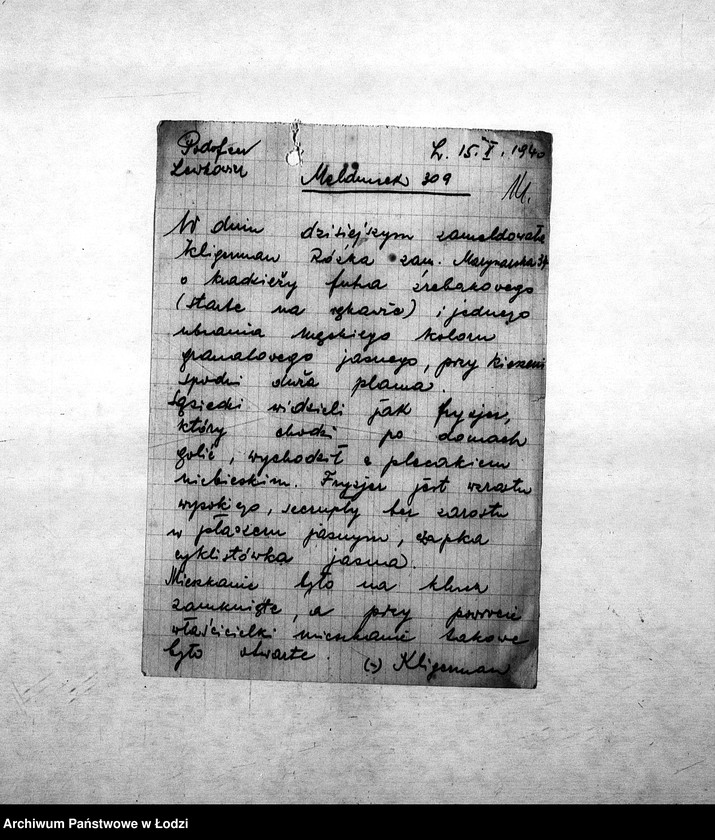 Podofen
Lewkowicz
Ł. 15.X.1940
Meldunek 309
M.
W dniu dzisiejszym zameldowała
Kligerman Rózka zam. Marynarska 34
o kradzieży futra źrebakowego
(starte na rękawie) i jednego
ubrania męskiego koloru
granatowego jasnego, przy kieszeni
spodni duża plama.
Sąsiedki widzieli jak fryzjer,
który chodzi po domach
golić, wychodził z plecakiem
niebieskim. Fryzjer jest wzrostu
wysokiego, szczupły bez zarostu
w płaszczu jasnym, czapka
cyklistówka jasna.
Mieszkanie było na klucz
zamknięte, a przy powrocie
właścicielki mieszkanie takowe
było otwarte.
(-) Kligerman
Archiwum Państwowe w Łodzi